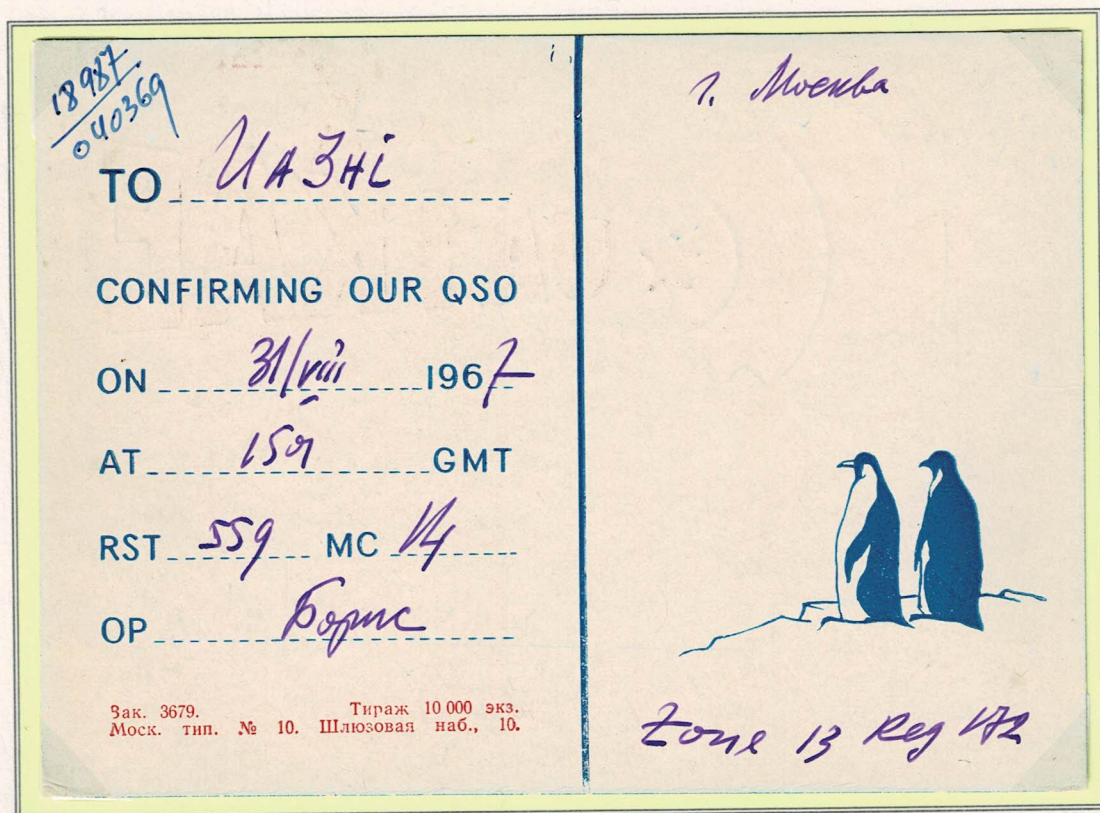 18987.
040369
TO UA3HI
CONFIRMING OUR QSO
ON 31/VIII 1967
AT GMT
RST 559 MC 14
OP Борис
Зак. 3679. Тираж 10 000 экз.
Моск. тип. № 10. Шлюзовая наб., 10.
г. Москва
Zone 13 Reg 172